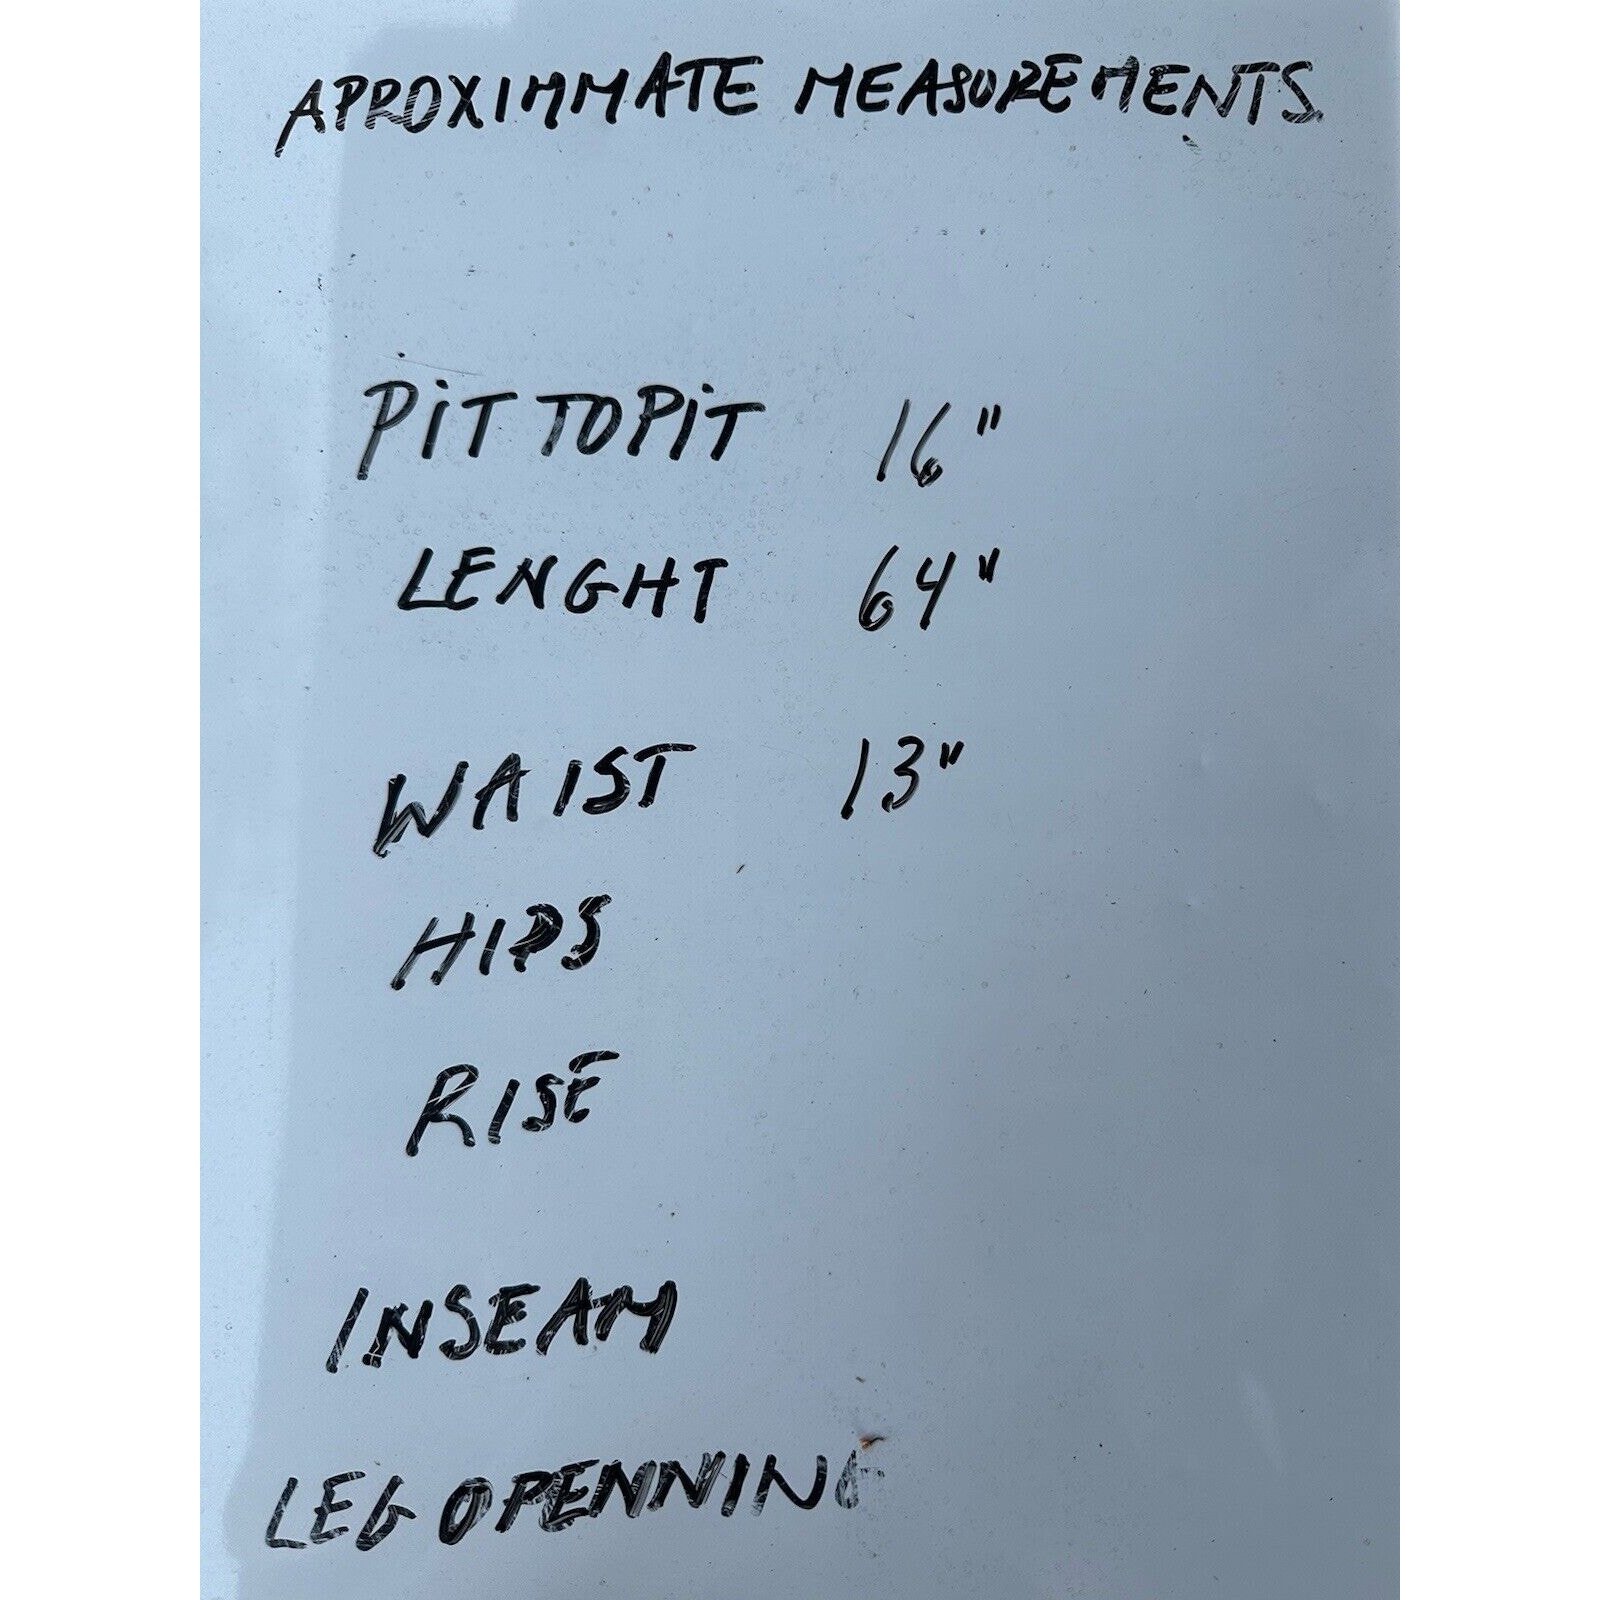 APROXIMMATE MEASUREMENTS.
PiT TO PiT 16"
LENGHT 64"
WAIST 13"
HIPS
RISE
INSEAM
LEG OPENNING